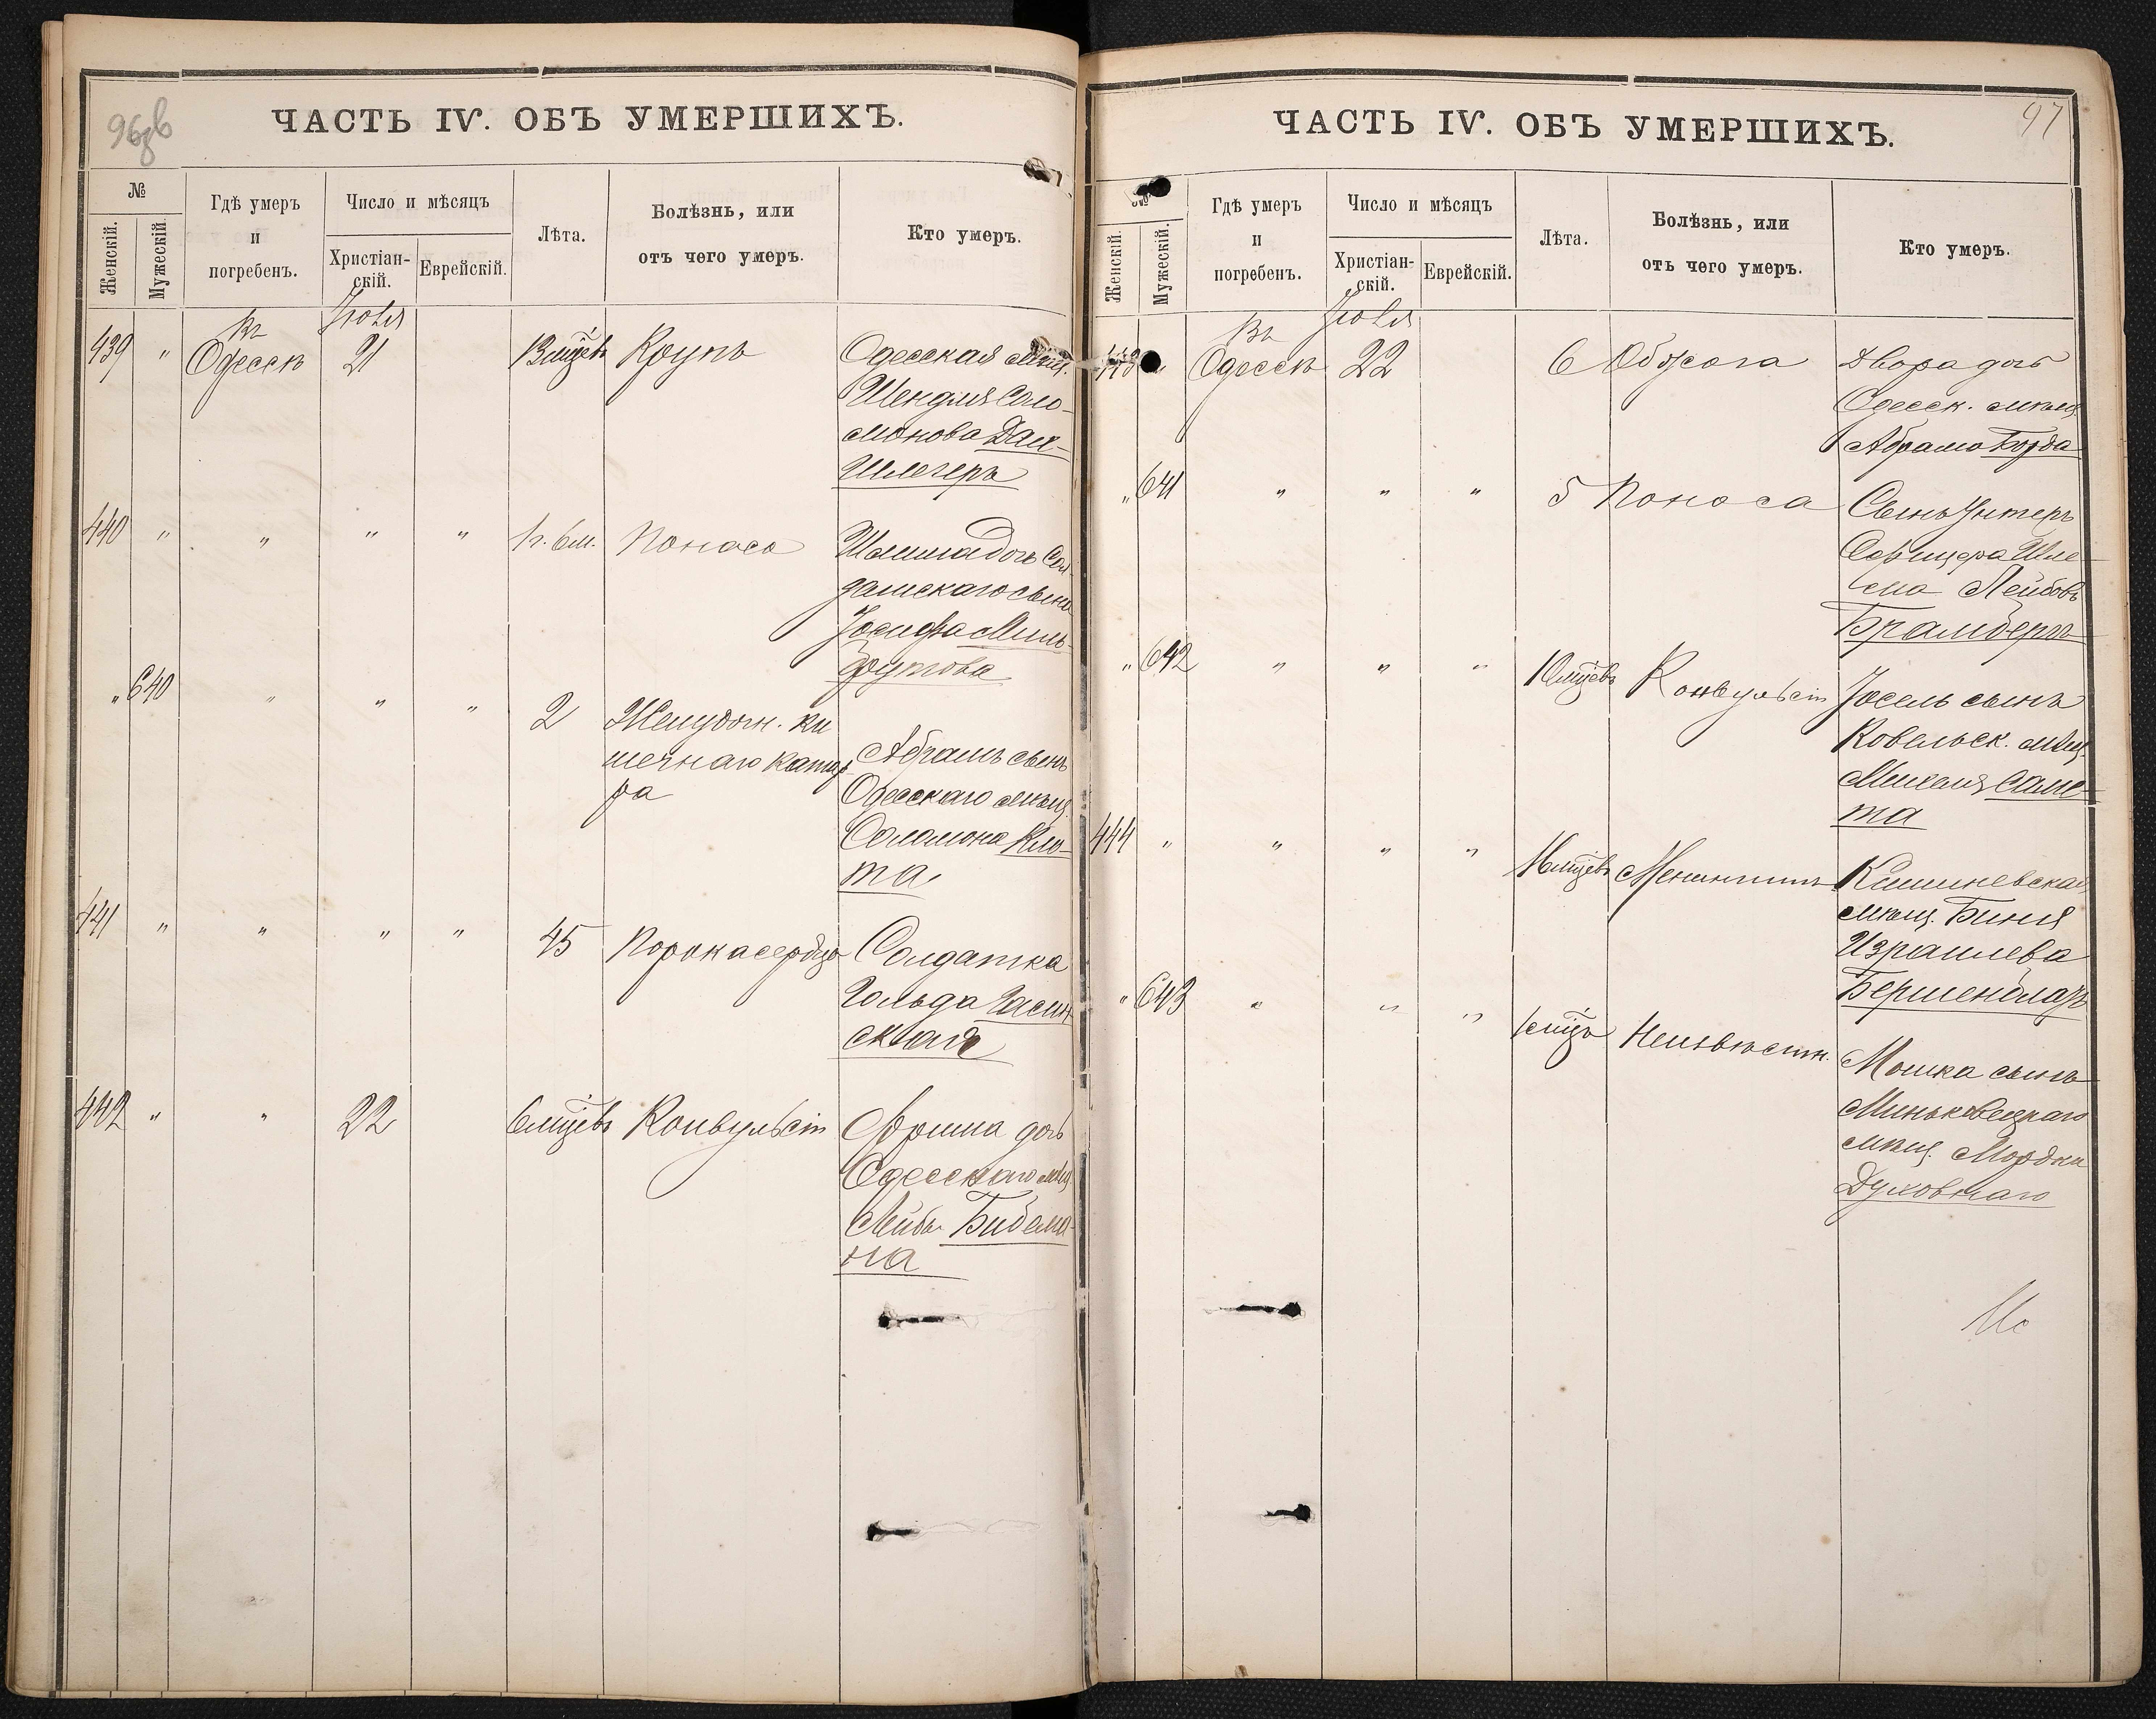 96 зв
ЧАСТЬ IV. ОБЪ УМЕРШИХЪ.
№
Женскій.
Мужескій
Гдѣ умеръ
и
погребенъ.
Число и мѣсяцъ
Христіан-
скій.
Еврейскій.
Лѣта.
Болѣзнь, или
отъ чего умеръ.
Кто умеръ.
Въ Іюля
439 " Одессѣ 21 Крупъ Одесская мѣщ.
Шендля Соло-
монова
шлегеръ
440 " " " " 1 г. 6 м. Поноса дочь Сол-
датскаго сына
Іосифа Миль-
гутова
" 640 " " " 2 Желудочн. ки
шечнаго катар
ра
Абрамъ сынъ
Одесскаго мѣщ.
Соломона Кло-
та
441 " " " " 45 Порока сердца Солдатка
Гольда
ская
442 " " 22 6 мцевъ Конвульсіи Фрима дочь
Одесскаго мѣщ
Лейбы Бидема-
на
97
ЧАСТЬ IV. ОБЪ УМЕРШИХЪ.
Женскій.
Мужескій.
Гдѣ умеръ
и
погребенъ.
Число и мѣсяцъ
Христіан-
скій.
Еврейскій.
Лѣта.
Болѣзнь, или
отъ чего умеръ.
Кто умеръ.
Въ Іюля
443 Одессѣ 22 6 Обжога Двора дочь
Одесск. мѣщ
Абрама Борда
" 641 " " " 5 Поноса Сынъ Унтеръ
Офицера Шле-
ма Лейбовъ
Брамбергъ
" 642 " " " 10 мцевъ Конвульсіи Іосель сынъ
Ковельск. мѣщ
Михеля Саме-
та
444 " " " " Менингитъ Кишиневская
мѣщ. Биня
Израилева
" 643 " " " 1 мцъ Неизвѣстн. Мошка сынъ
Миньковецкаго
мѣщ. Мордки
Духовнаго